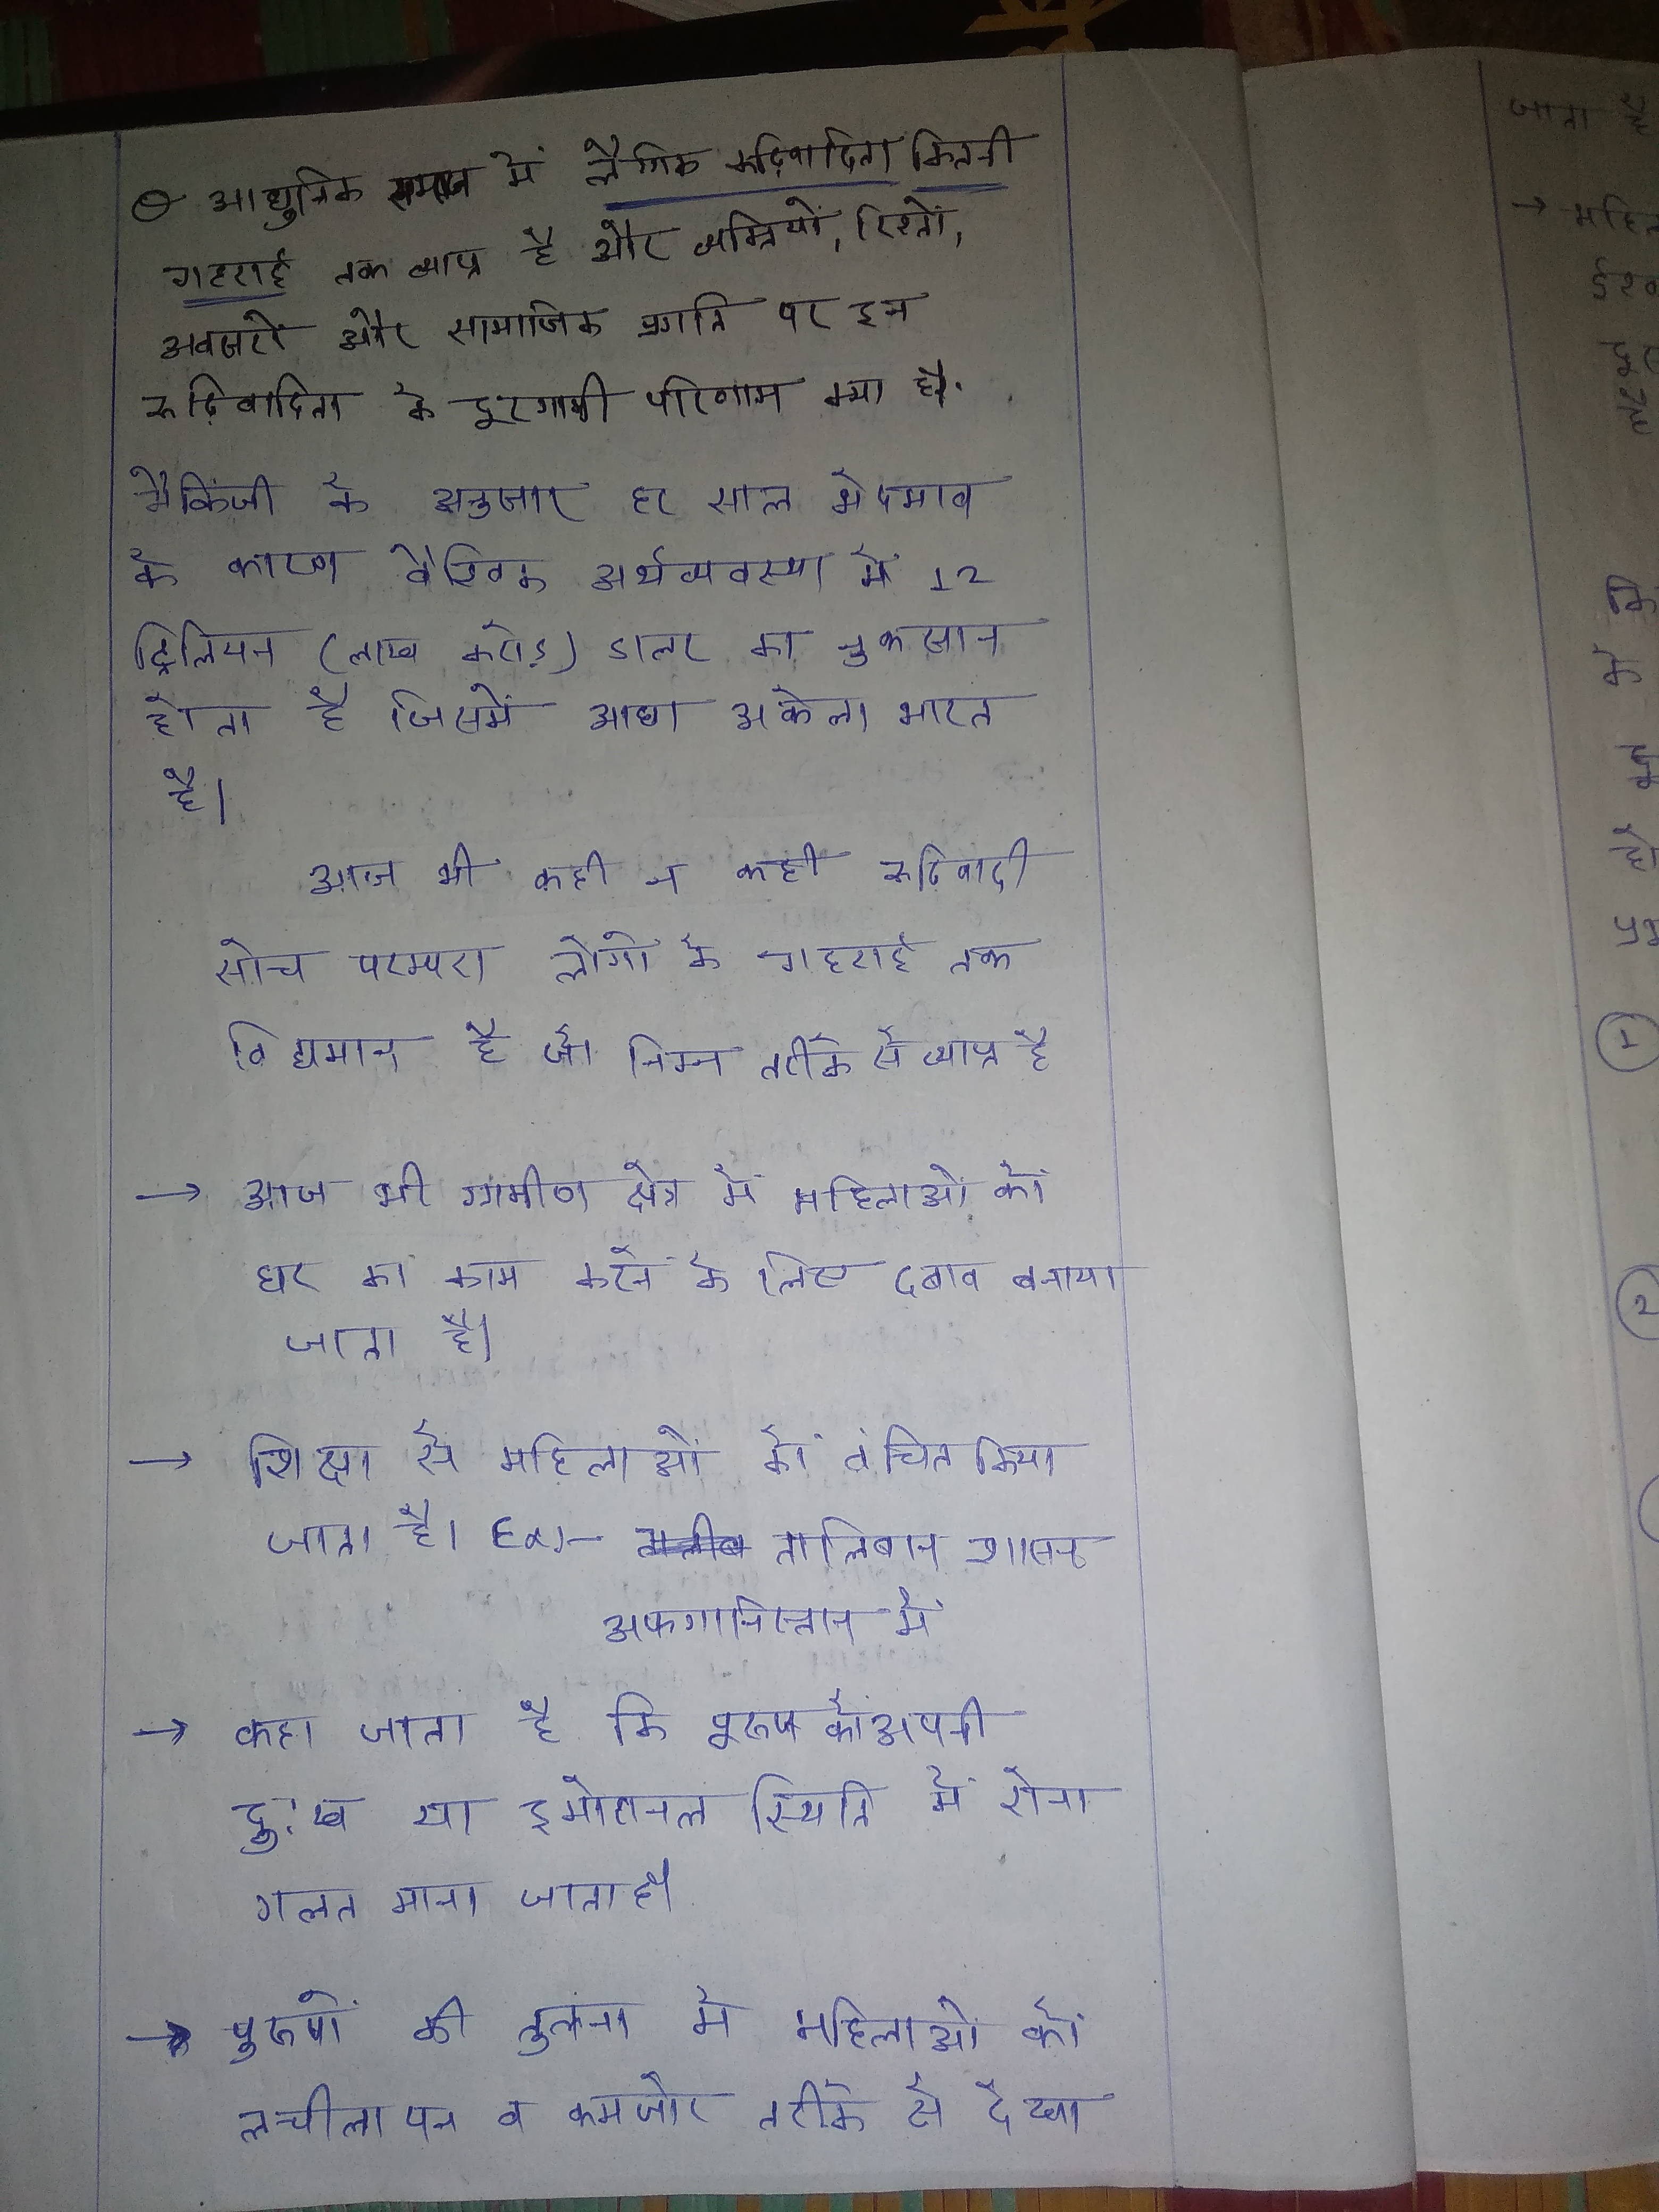 आधुनिक समाज में लैंगिक रूढ़िवादिता कितनी
गहराई तक व्याप्त है और व्यक्तियों, रिश्तों,
अवसरों और सामाजिक प्रगति पर इन
रूढ़िवादिता के दूरगामी परिणाम क्या है.
मैकिंजी के अनुसार हर साल भेदभाव
के कारण वैश्विक अर्थव्यवस्था में 12
ट्रिलियन (लाख करोड़) डालर का नुकसान
होता है जिसमें आधा अकेला भारत
है।
आज भी कही न कही रूढ़िवादी
सोच परम्परा लोगो के गहराई तक
विद्यमान है जो निम्न तरीके से व्याप्त है
→ आज भी ग्रामीण क्षेत्र में महिलाओं को
घर का काम करने के लिए दबाव बनाया
जाता है।
→ शिक्षा से महिलाओं को वंचित किया
जाता है। Ex:- तालिबान शासन
अफगानिस्तान में
→ कहा जाता है कि पुरूष को अपनी
दुःख या इमोशनल स्थिति में रोना
गलत माना जाता है।
→ पुरूषों की तुलना में महिलाओं को
लचीलापन व कमजोर तरीके से देखा
जाता है
→
1
2